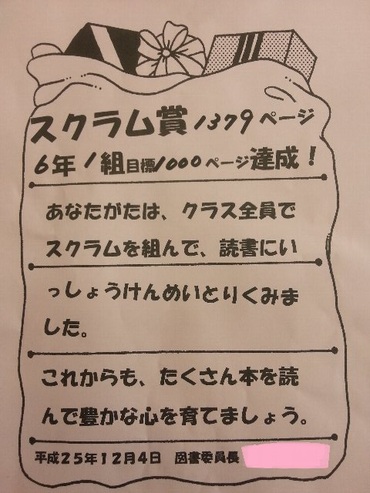 スクラム賞1379ページ
6年1組目標1000ページ達成！
あなたがたは、クラス全員で
スクラムを組んで、読書にい
っしょうけんめいとりくみま
した。
これからも、たくさん本を読
んで豊かな心を育てましょう。
平成25年12月4日　図書委員長